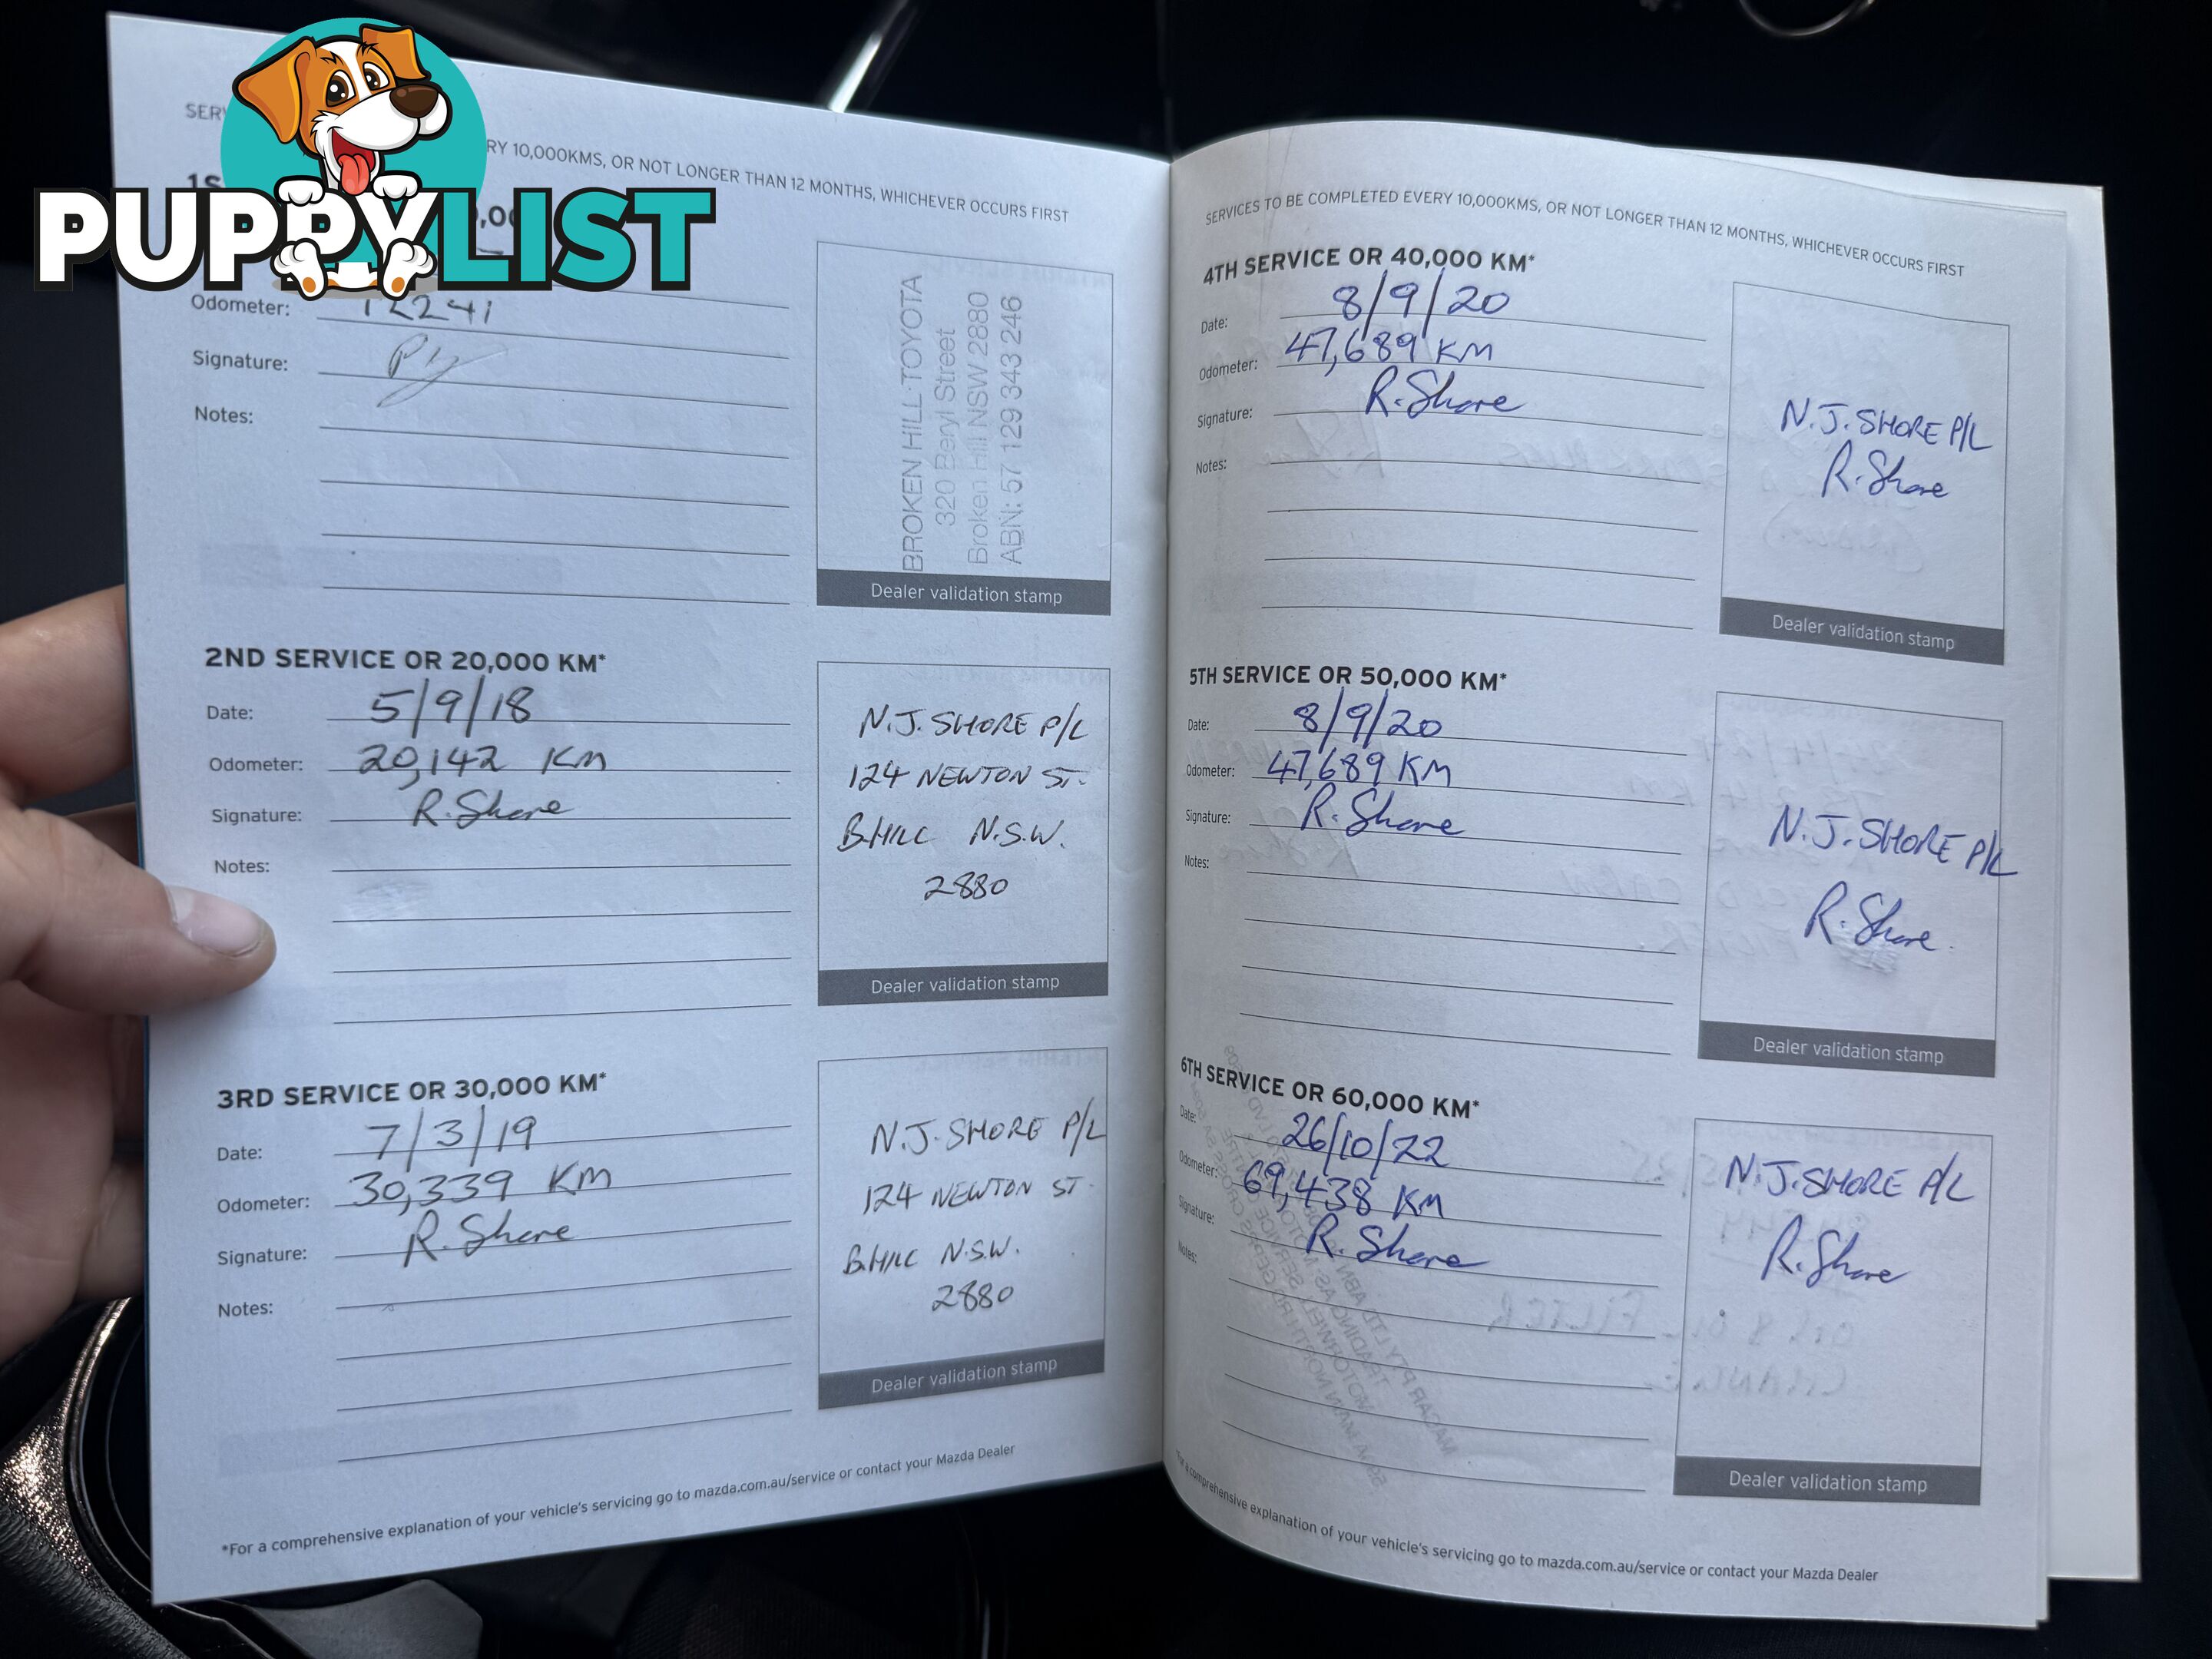 PUPPYLIST
RY 10,000KMS, OR NOT LONGER THAN 12 MONTHS, WHICHEVER OCCURS FIRST
Odometer: 12241
Signature:
Notes:
BROKEN HILL TOYOTA
320 Beryl Street
Broken Hill NSW 2880
ABN: 57 129 343 246
Dealer validation stamp
2ND SERVICE OR 20,000 KM*
Date: 5/9/18
Odometer: 20,142 KM
Signature: R. Shore
Notes:
N.J. SHORE P/L
124 NEWTON ST.
B.HILL N.S.W.
2880
Dealer validation stamp
3RD SERVICE OR 30,000 KM*
Date: 7/3/19
Odometer: 30,339 KM
Signature: R. Shore
Notes:
N.J. SHORE P/L
124 NEWTON ST.
B.HILL N.S.W.
2880
Dealer validation stamp
*For a comprehensive explanation of your vehicle's servicing go to mazda.com.au/service or contact your Mazda Dealer
SERVICES TO BE COMPLETED EVERY 10,000KMS, OR NOT LONGER THAN 12 MONTHS, WHICHEVER OCCURS FIRST
4TH SERVICE OR 40,000 KM*
Date: 8/9/20
Odometer: 47,689 KM
Signature: R. Shore
Notes:
N.J. SHORE P/L
R. Shore
Dealer validation stamp
5TH SERVICE OR 50,000 KM*
Date: 8/9/20
Odometer: 47,689 KM
Signature: R. Shore
Notes:
N.J. SHORE P/L
R. Shore.
Dealer validation stamp
6TH SERVICE OR 60,000 KM*
Date: 26/10/22
Odometer: 69,438 KM
Signature: R. Shore
Notes:
N.J. SHORE P/L
R. Shore
Dealer validation stamp
*For a comprehensive explanation of your vehicle's servicing go to mazda.com.au/service or contact your Mazda Dealer